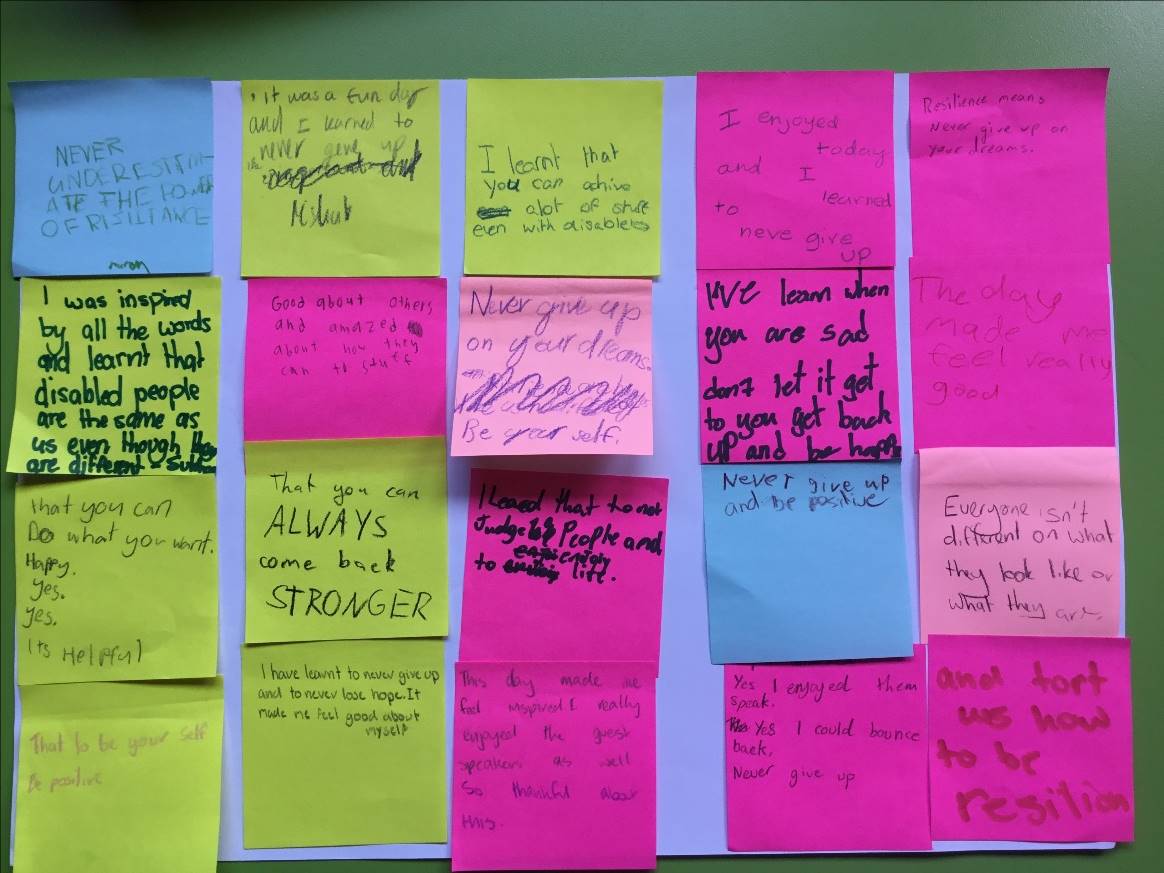 NEVER
UNDERESTIM-
ATE THE POWER
OF RISILIANCE
It was a fun day
and I learned to
never geve up
I learnt that
you can achive
alot of stuff
even with disablets
I enjoyed
today
and I
learned
to
neve give
up
Resilience means
Never give up on
your dreams.
I was inspired
by all the words
and learnt that
disabled people
are the same as
us even though they
are different -
Good about others
and amazed
about how they
can to stuff
Never give up
on your dreams.
Be your self.
I've learn when
you are sad
don't let it get
to you get back
up and be happy
The day
made me
feel really
good
that you can
Do what you want.
Happy.
Yes.
Yes.
Its Helpful
That you can
ALWAYS
come back
STRONGER
I leared that to not
Judge People and
to life.
Never give up
and be positive
Everyone isn't
different on what
they look like or
what they are.
That to be your self
Be positive
I have learnt to never give up
and to never lose hope. It
made me feel good about
myself
This day made me
feel inspired. I really
enjoyed the guest
speakers as well
So thankful about
this.
Yes I enjoyed them
speak.
Yes I could bounce
back.
Never give up
and tort
us how
to be
resilion